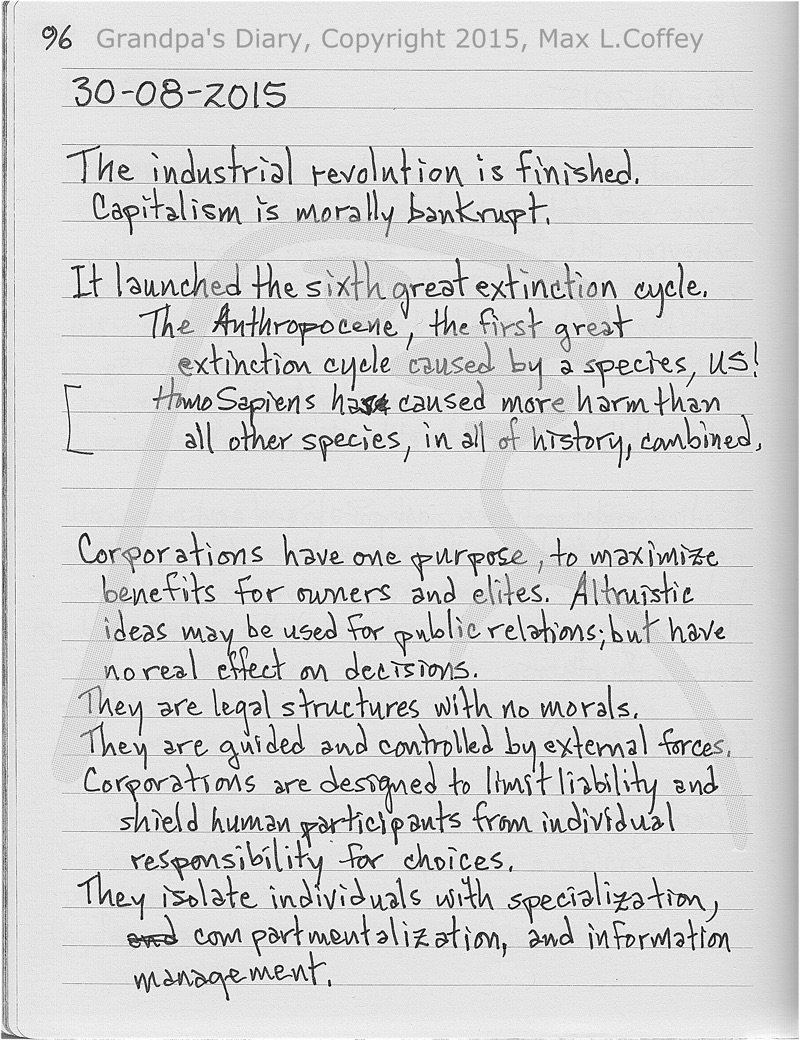 96 Grandpa's Diary, Copyright 2015, Max L.Coffey
30-08-2015
The industrial revolution is finished.
Capitalism is morally bankrupt.
It launched the sixth great extinction cycle.
The Anthropocene, the first great
extinction cycle caused by a species, US!
Homo Sapiens has caused more harm than
all other species, in all of history, combined.
Corporations have one purpose, to maximize
benefits for owners and elites. Altruistic
ideas may be used for public relations; but have
no real effect on decisions.
They are legal structures with no morals.
They are guided and controlled by external forces.
Corporations are designed to limit liability and
shield human participants from individual
responsibility for choices.
They isolate individuals with specialization,
and compartmentalization, and information
management.